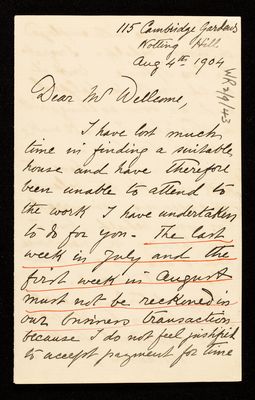 115 Cambridge Gardens
Notting Hill
Aug 4th 1904
Dear Mr Wellcome,
I have lost much
time in finding a suitable
house and have therefore
been unable to attend to
the work I have undertaken
to do for you. The last
week in July and the
first week in August
must not be reckoned in
our business transaction
because I do not feel justified
to accept payment for time